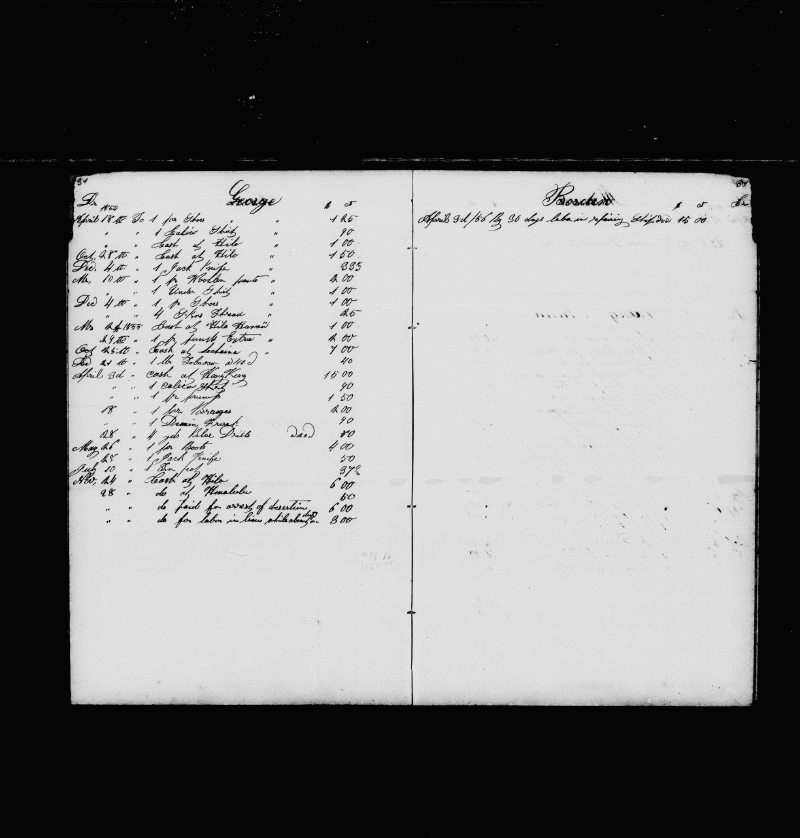 31
Dr 1854 George $ c
April 18 th To 1 pr Shoes " 1 25
" " " 1 Calico Shirt " 90
" " " Cash at Hilo " 1 00
Oct, 28 th " Cash at Hilo " 1 50
Dec. 4 th " 1 Jack Knife " 33
" 10 th " 1 pr Woolen pants " 2 00
" 1 Under Shirt " 1 00
Dec 4 th " 1 pr Shoes " 1 00
" " " 4 Skns Thread " 25
1855 Cash at Hilo 1 00
29 th " 1 pr Extra " 2 00
Oct 25 th " Cash at Lahaina " 7 00
" 1 lb Tobacco 40
April 3d " cash at Hong Kong 15 00
" " 1 calico Shirt 90
" " 1 pr pumps 1 50
18 " 1 pr 2 00
" " 1 Denim Frock 90
28 " 4 yds Blue Drills 80
May 26 " 1 pair Boots 4 00
" 28 " 1 Jack Knife 50
July 10 " 1 Tin pot 37½
Nov, 24 " Cash at Hilo 6 00
28 do at Honolulu 50
" " do paid for arrest of desertion 6 00
" " do for labor in lieu while 3 00
31
$ c Cr
April 3d /56 By 30 days labor in 15 00